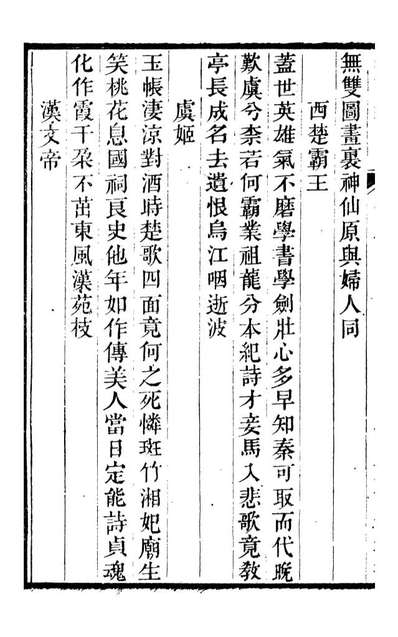 無雙圖畫裏神仙原與婦人同
西楚霸王
蓋世英雄氣不磨學書學劍壯心多早知秦可取而代晚
歎虞兮柰若何霸業祖龍分本紀詩才妾馬入悲歌竟教
亭長成名去遺恨烏江咽逝波
虞姬
玉帳淒涼對酒時楚歌四面竟何之死憐斑竹湘妃廟生
笑桃花息國祠良史他年如作傳美人當日定能詩貞魂
化作霞千朶不茁東風漢苑枝
漢文帝